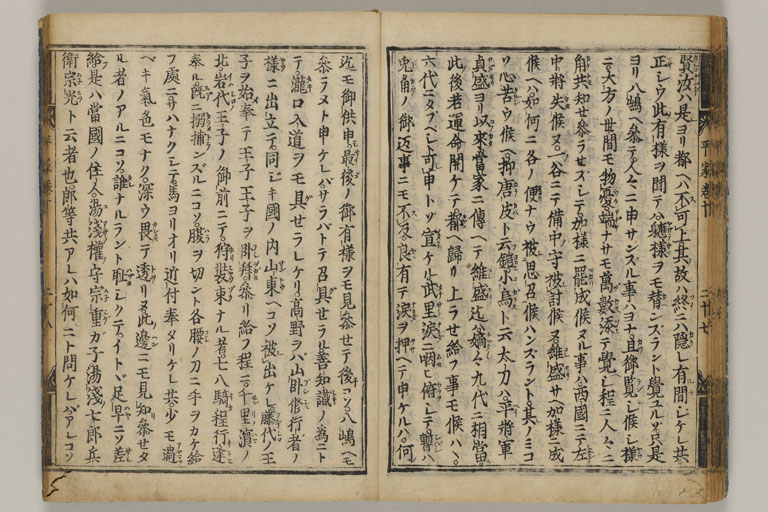 賢汝ハ是ヨリ都ヘハ不可上其故ハ終ニハ隠レ有間シケレ共
正シウ此有様ヲ聞テハ軈様ヲモ替ンズラント覚ユルソ只是
ヨリ八嶋ヘ参テ人々ニ申サンズル事ハヨナ且御覧シ候シ様
ニ大方ノ世間モ物憂端ナサモ萬數添テ覚シ程ニ人々ニ
角共知セ参ラセズシテ加様ニ罷成候ヌル事ハ西國ニテ左
中將失候ヌ一谷ニテ備中ノ守被討候ヌ維盛サヘ加様ニ成
候ヘハ如何ニ各ノ便ナウ被思召候ハンズラント其ノミコ
ソ心苦ウ候ヘ抑唐皮ト云鎧小烏ト云太刀ハ平將軍
貞盛ヨリ以來當家ニ傳ヘテ維盛迄ハ嫡々九代ニ相當ル
此後若運命開ケテ都ヘ歸リ上ラセ給フ事モ候ハヽ
六代ニタブベシト可申トソ宣ケル武里涙ニ咽ヒ俯シテ暫ハ
兎角ノ御返事ニモ不及良有テ涙ヲ押ヘテ申ケルハ何
平家巻十
二十七
迄モ御供申最後ノ御有様ヲモ見参セテ後コソ八嶋ヘモ
参ラメト申ケレバサラバトテ召具セラル善知識ノ為ニト
テ瀧口入道ヲモ具セラレケリ高野ヲバ山臥修行者ノ
様ニ出立テ同シキ國ノ内山東ヘコソ被出ケレ藤代ノ王
子ヲ始奉テ王子王子ヲ臥拜参リ給フ程ニ千里ノ濱ノ
北岩代ノ王子ノ御前ニテ狩装束ナル者七八騎程行逢
奉ル既ニ搦捕ンズルニコソ腹ヲ切ント各腰ノ刀ニ手ヲカケ給
フ處ニサハナクシテ馬ヨリオリ近付奉タリケレ共少モ過
ベキ氣色モナク深ウ畏テ透リヌ此邊ニモ見知参セタ
ル者ノアルニコソ誰ナルラント耻シクテイトド足早ニソ差
給是ハ當國ノ住人湯淺權ノ守宗重カ子湯淺七郎兵
衛宗光ト云者也郎等共アレハ如何ニト問ケレバアレコソ